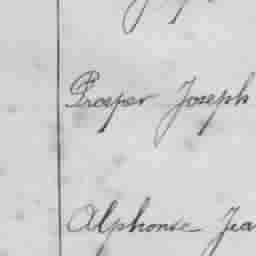 Prosper Joseph
Alphonse Jea